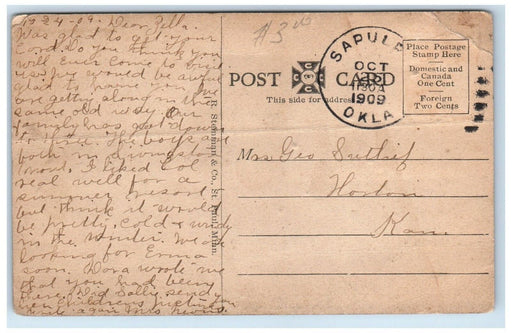 10-24-09. Dear Zella.
Was glad to get your
Card. Do you think you
will Ever Come to visit
us? We would be awful
glad to have you. We
are getting along in the
same old way. Our
family has got down
to three. The boys are
both in Livingston
Mont. I liked Col
real well for a
summer resort
but think it would
be pretty cold & windy
in the winter. We are
looking for Emma
soon. Dora wrote me
that you had been
there. Did Sally send you
her Childrens picture
write again Mrs
$3.00
POST CARD
This side for address
SAPULPA
OCT
1130A
1909
OKLA
Place Postage
Stamp Here
Domestic and
Canada
One Cent
Foreign
Two Cents
R. Steinman & Co., St. Paul, Minn.
Mrs Geo Sutlief
Horton
Kan.